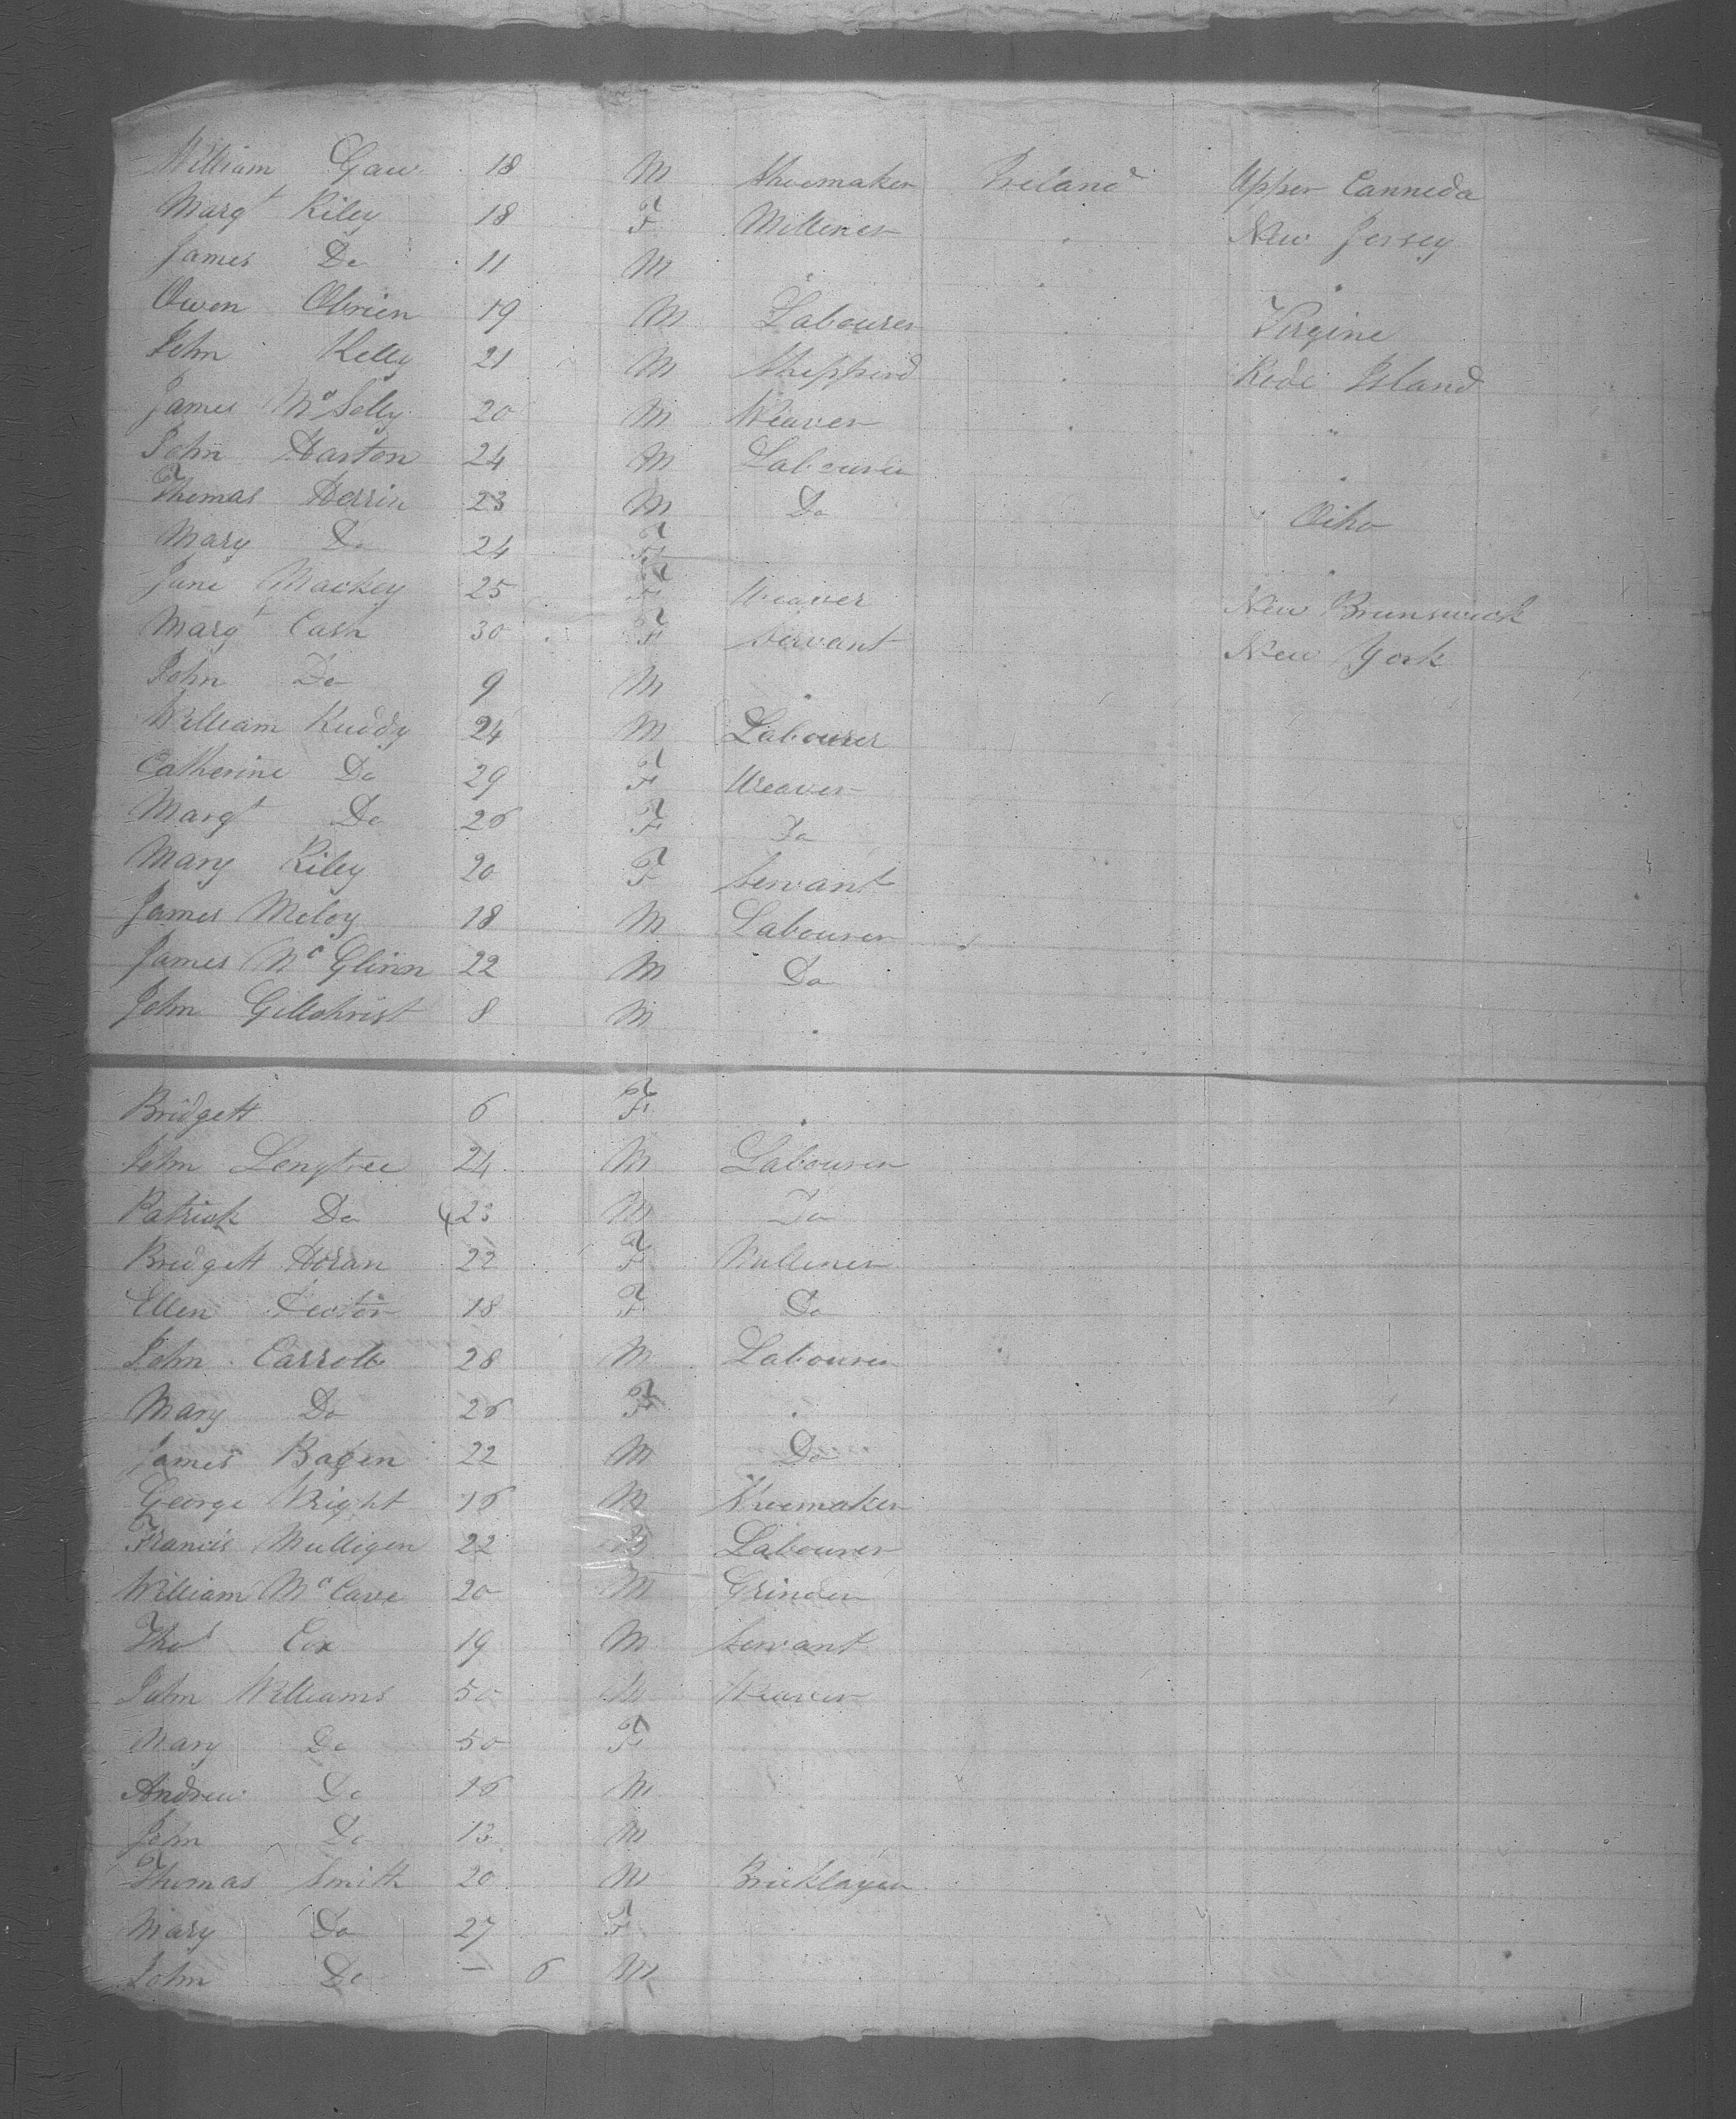 William Gaw 18 M Shoemaker Ireland Upper Canneda
Margt Riley 18 F Milliner " New Jersey
James Do 11 M " " "
Owen Obrien 19 M Labourer " Virgine
John Kelly 21 M Sheppird " Rode Island
James Mc 20 M Weaver " "
John Harton 24 M Labourer "
Thomas Herrin 23 M Do Oiho
Mary Do 24 F "
Jane Mackey 25 F Weaver New Brunswick
Margt Cash 30 F Servant New York
John Do 9 M "
William Kuddy 24 M Labourer
Catherine Do 29 F Weaver
Margt Do 26 F Do
Mary Riley 20 F Servant
James Meloy 18 M Labourer
James Mc Glinn 22 M Do
John Gillchrist 8 M "
Bridgett 6 F "
John Longtree 24 M Labourer
Patrick Do 23 M Do
Bridgett Horan 22 F Milliner
Ellen 18 F Do
John Carroll 28 M Labourer
Mary Do 26 F "
James 22 M Do
George Wright 16 M Shoemaker
Francis Mulligen 22 M Labourer
William Mc Cave 20 M Grinder
Thos Cox 19 M Servant
John Williams 50 M Weaver
Mary Do 50 F
Andrew Do 16 M
John Do 13 M
Thomas Smith 20 M Bricklayer
Mary Do 27 F
John Do – 6 M